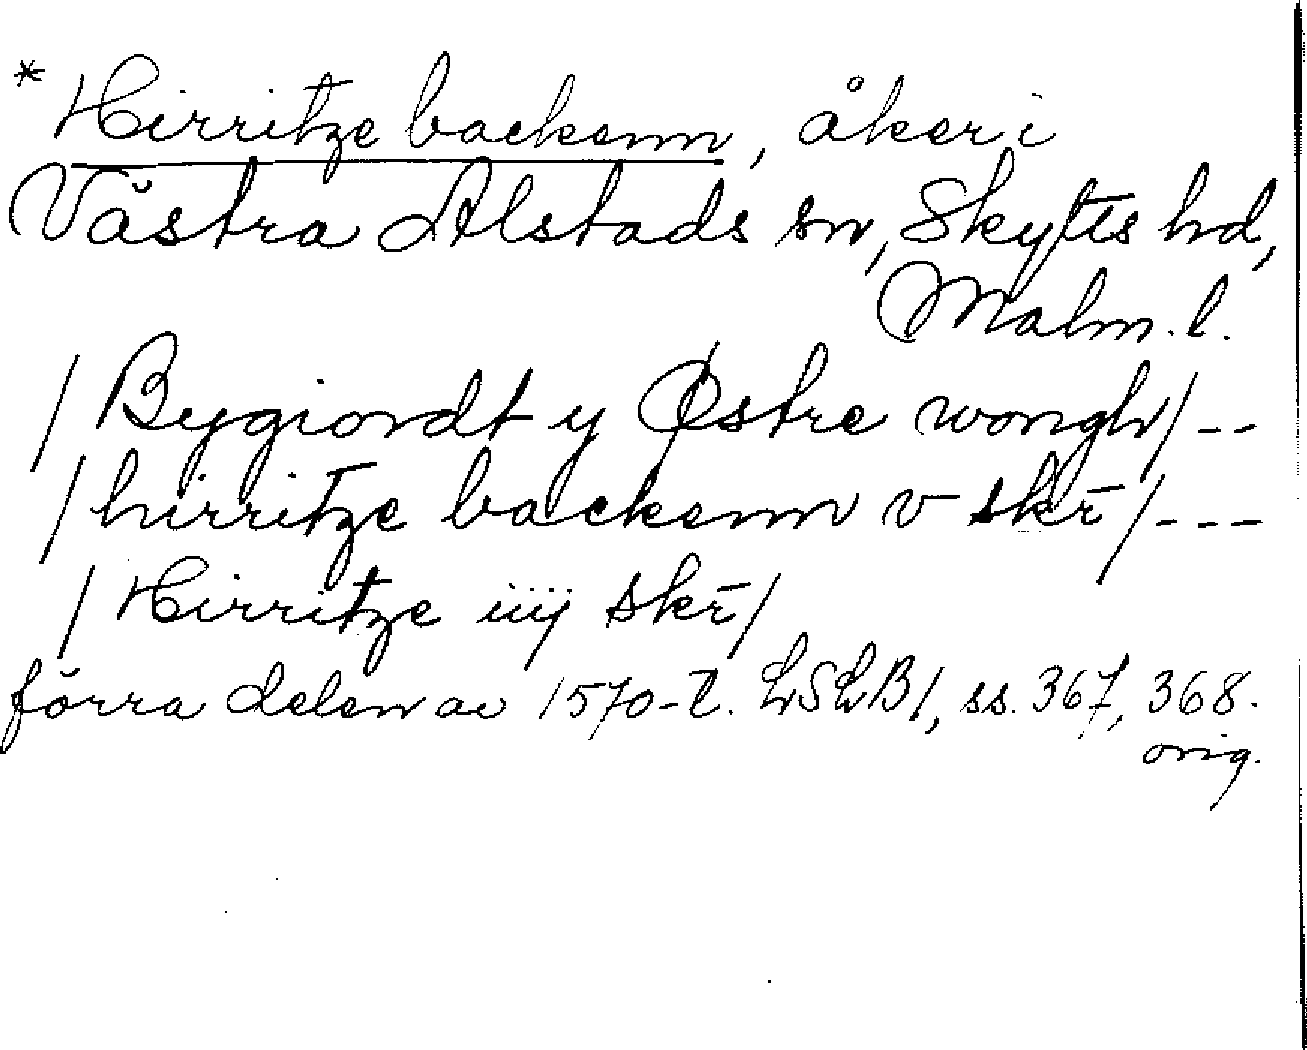 * Hirritze backenn, åker i
Västra Alstads sn, Skytts hd,
Malm. l.
/ Bygiordt y Østre wongh / --
/ hirritze backenn v skr̄ / ---
/ Hirritze iiij skr̄ /
förra delen av 1570-t. LSLB1, ss. 367, 368.
orig.